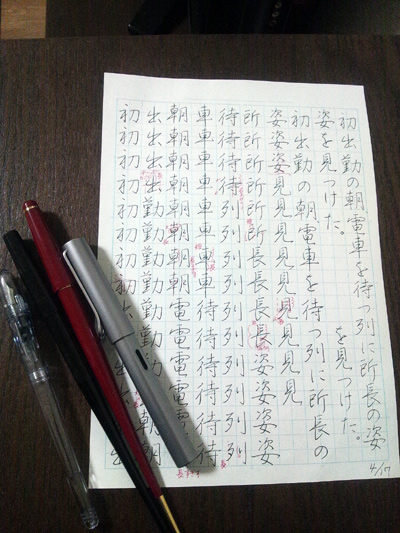 初出勤の朝電車を待つ列に所長の姿
姿を見つけた。 を見つけた。
初出勤の朝電車を待つ列に所長の
姿姿姿見見見見見見見見見
所所所所所所長長長長姿姿姿姿
待待待待列列列列列列列列列列
車車車車車車車車待待待待待待
朝朝朝朝朝朝朝朝電電電電電
出出出出勤勤勤勤勤勤勤朝朝朝
初初初初初初初初出出
4/17